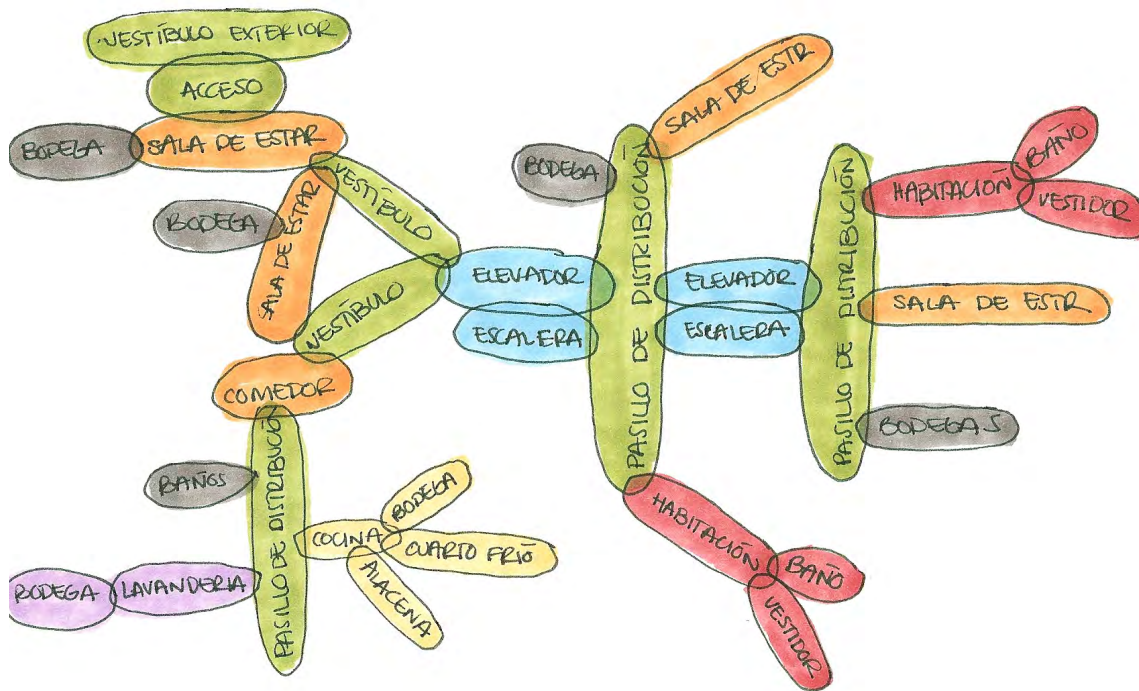 VESTÍBULO EXTERIOR
ACCESO
BODEGA
SALA DE ESTAR
VESTÍBULO
BODEGA
SALA DE ESTAR
VESTÍBULO
COMEDOR
PASILLO DE DISTRIBUCIÓN
BAÑOS
BODEGA
LAVANDERIA
COCINA
BODEGA
CUARTO FRIÓ
ALACENA
ELEVADOR
ESCALERA
BODEGA
PASILLO DE DISTRIBUCIÓN
SALA DE ESTR
HABITACIÓN
BAÑO
VESTIDOR
ELEVADOR
ESCALERA
PASILLO DE DISTRIBUCIÓN
HABITACIÓN
BAÑO
VESTIDOR
SALA DE ESTR
BODEGAS